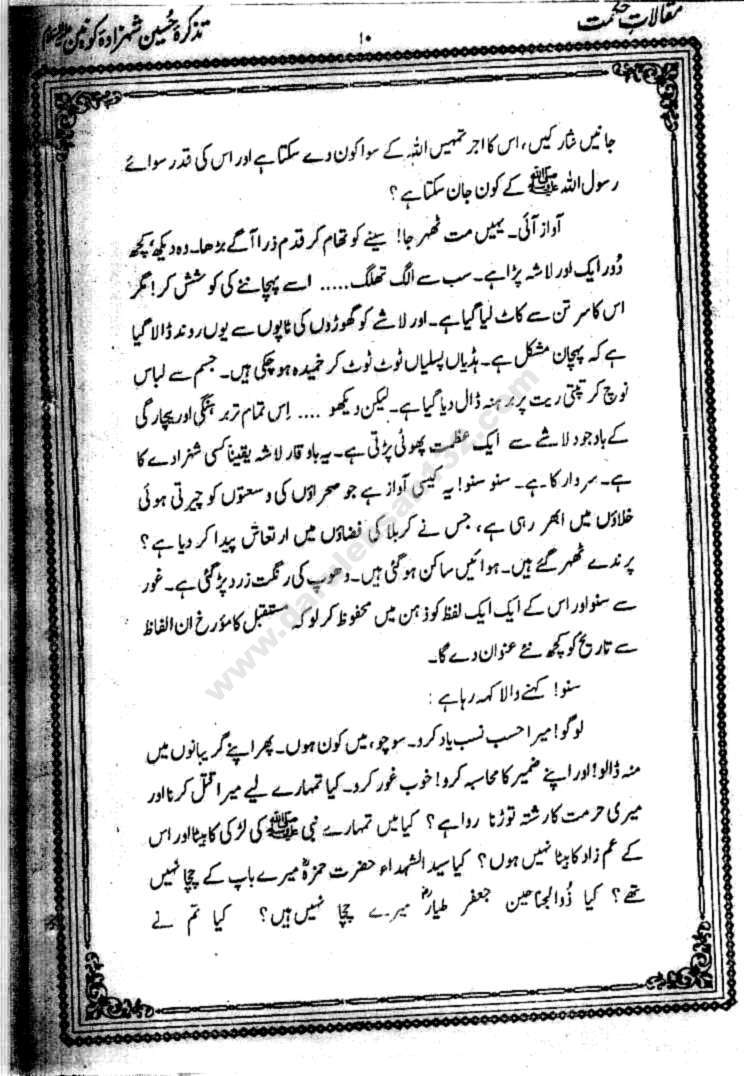 مقالاتِ حکمت
۱۰
تذکرۂ حسین شہزادۂ کونین
جانیں نثار کیں، اس کا اجر تمہیں اللہ کے سوا کون دے سکتا ہے اور اس کی قدر سوائے
رسول اللہ ﷺ کے کون جان سکتا ہے؟
آواز آئی۔ یہیں مت ٹھہر جا! سینے کو تھام کر قدم ذرا آگے بڑھا۔ وہ دیکھ، کچھ
دُور ایک اور لاشہ پڑا ہے۔ سب سے الگ تھلگ..... اسے پہچاننے کی کوشش کر! مگر
اس کا سر تن سے کاٹ لیا گیا ہے۔ اور لاشے کو گھوڑوں کی ٹاپوں سے یوں روند ڈالا گیا
ہے کہ پہچان مشکل ہے۔ ہڈیاں پسلیاں ٹوٹ ٹوٹ کر خمیدہ ہو چکی ہیں۔ جسم سے لباس
نوچ کر تپتی ریت پر برہنہ ڈال دیا گیا ہے۔ لیکن دیکھو .... اِس تمام تر برہنگی اور بیچارگی
کے باوجود لاشے سے ایک عظمت پھوٹی پڑتی ہے۔ یہ باوقار لاشہ یقیناً کسی شہزادے کا
ہے۔ سردار کا ہے۔ سنو سنو! یہ کیسی آواز ہے جو صحراؤں کی وسعتوں کو چیرتی ہوئی
خلاؤں میں ابھر رہی ہے، جس نے کربلا کی فضاؤں میں ارتعاش پیدا کر دیا ہے؟
پرندے ٹھہر گئے ہیں۔ ہوائیں ساکن ہو گئی ہیں۔ دھوپ کی رنگت زرد پڑ گئی ہے۔ غور
سے سنو اور اس کے ایک ایک لفظ کو ذہن میں محفوظ کر لو کہ مستقبل کا مؤرخ ان الفاظ
سے تاریخ کو کچھ نئے عنوان دے گا۔
سنو! کہنے والا کہہ رہا ہے :
لوگو! میرا حسب نسب یاد کرو۔ سوچو، میں کون ہوں۔ پھر اپنے گریبانوں میں
منہ ڈالو! اور اپنے ضمیر کا محاسبہ کرو! خوب غور کرو۔ کیا تمہارے لیے میرا قتل کرنا اور
میری حرمت کا رشتہ توڑنا روا ہے؟ کیا میں تمہارے نبی ﷺ کی لڑکی کا بیٹا اور اس
کے عم زاد کا بیٹا نہیں ہوں؟ کیا سید الشہداء حضرت حمزہؓ میرے باپ کے چچا نہیں
تھے؟ کیا ذُوالجناحین جعفر طیارؓ میرے چچا نہیں ہیں؟ کیا تم نے